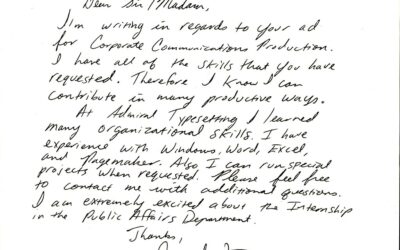 Dear Sir/Madam,
I'm writing in regards to your ad
for Corporate Communications Production.
I have all of the skills that you have
requested. Therefore I know I can
contribute in many productive ways.
At Admiral Typesetting I learned
many organizational skills. I have
experience with Windows, Word, Excel,
and Pagemaker. Also I can run special
projects when requested. Please feel free
to contact me with additional questions.
I am extremely excited about the Internship
in the Public Affairs Department.
Thanks,